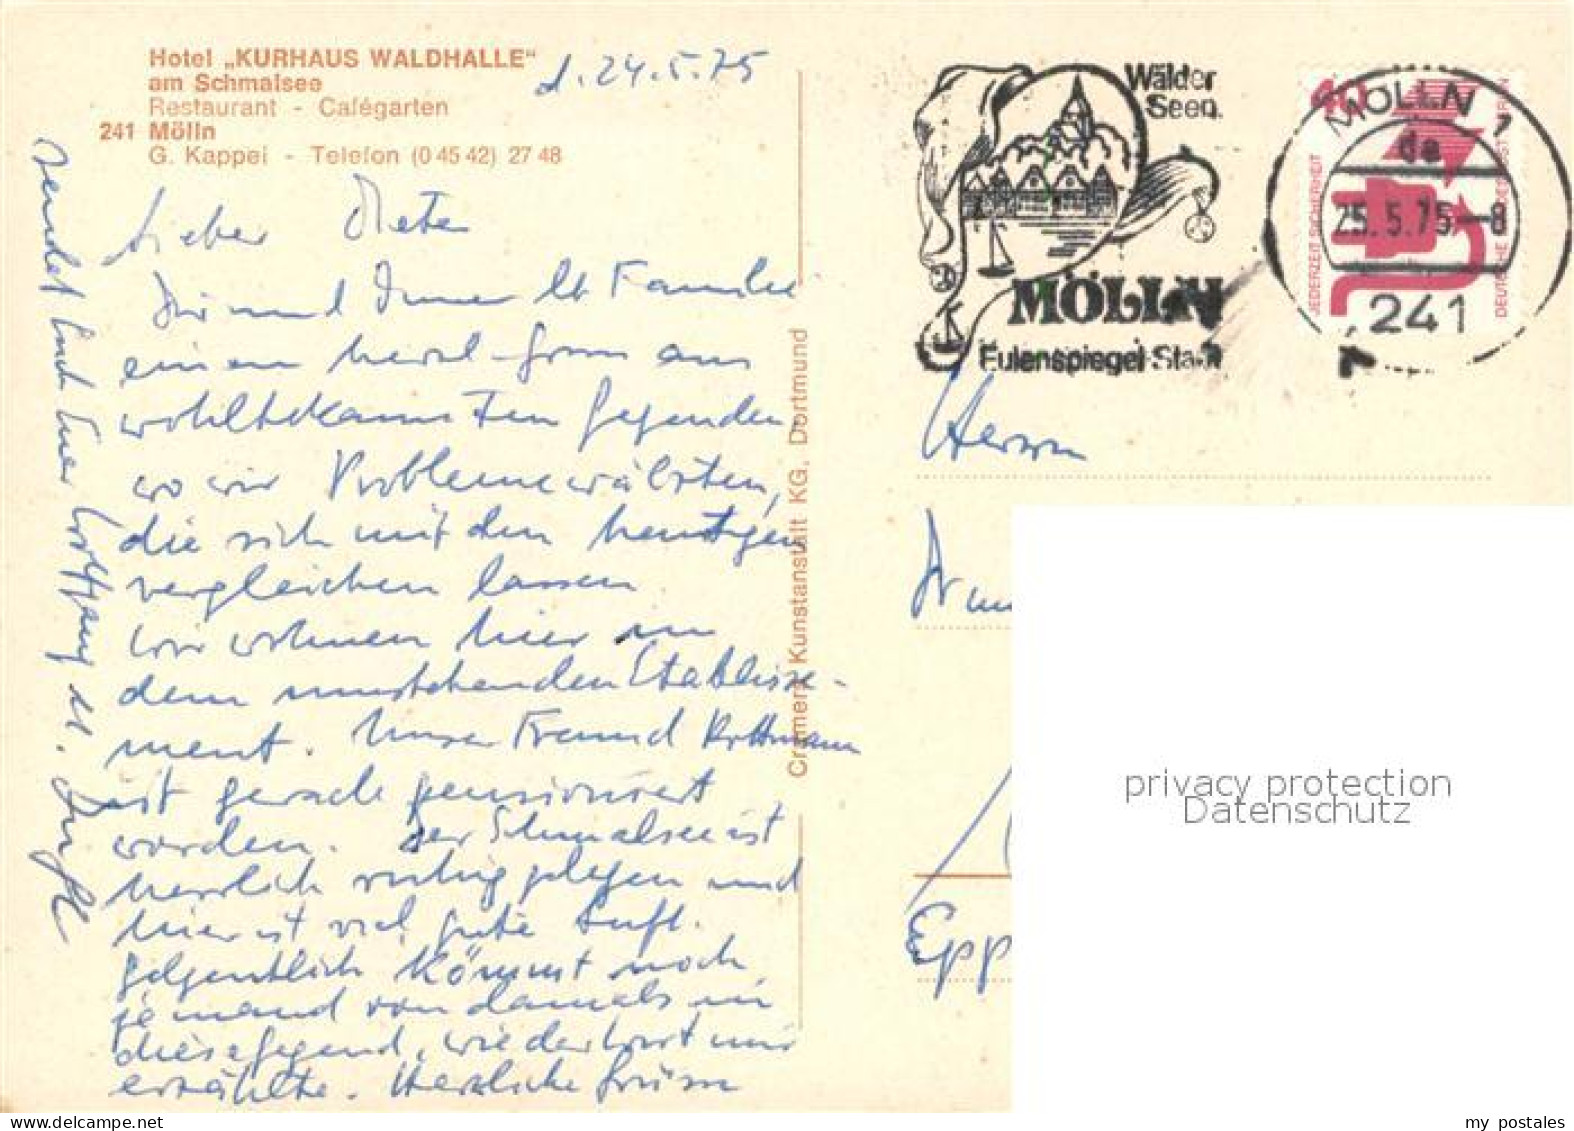 Hotel „KURHAUS WALDHALLE“
am Schmalsee
Restaurant - Cafégarten
241 Mölln
G. Kappei - Telefon (0 45 42) 27 48
d. 24.5.75
Lieber
Dir und Deiner lb Familie
einen herzl. gruss aus
wohlbekannten gegenden,
wo wir Probleme wälzten,
die sich mit den heutigen
vergleichen lassen
wir wohnen hier in
dem umstehenden Etablisse-
ment. Unser Freund Rottmann
ist gerade pensioniert
worden. Der Schmalsee ist
herrlich ruhig gelegen und
hier ist viel gute Luft.
gelgentlich kömmt noch
jemand von damals in
diese gegend, wie der Wirt mir
erzählte. Herzliche Grüsse
sendet Euch Euer Wolfgang u.
Cramers Kunstanstalt KG, Dortmund
Wälder
Seen.
MÖLLN
Eulenspiegel-Stadt
MÖLLN 1
da
25.5.75.-8
241
40
JEDERZEIT SICHERHEIT
DEUTSCHE BUNDESPOST BERLIN
Herrn
Epp
privacy protection
Datenschutz
my postales